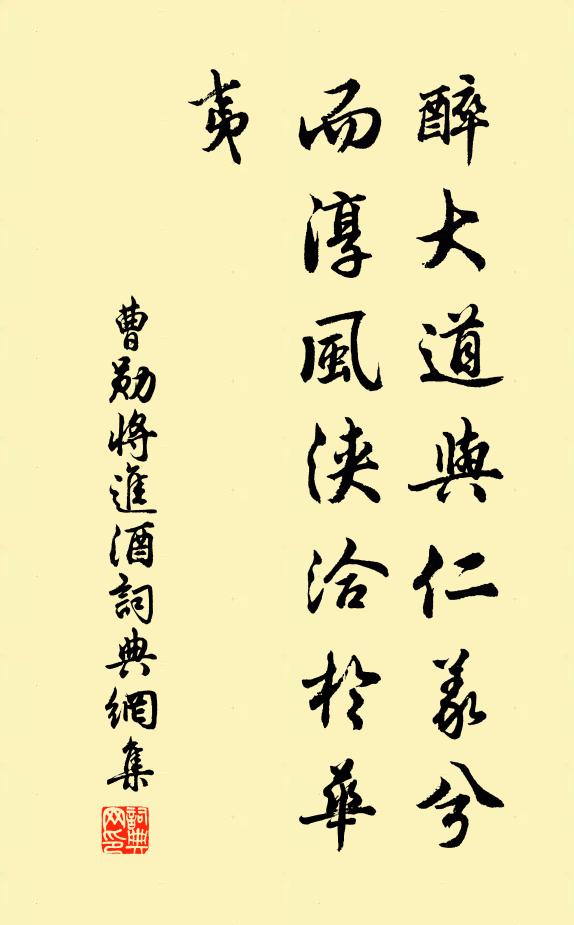 醉大道與仁義兮
而淳風浹洽於華
夷
曹勛將進酒詞典網集
詞典网印